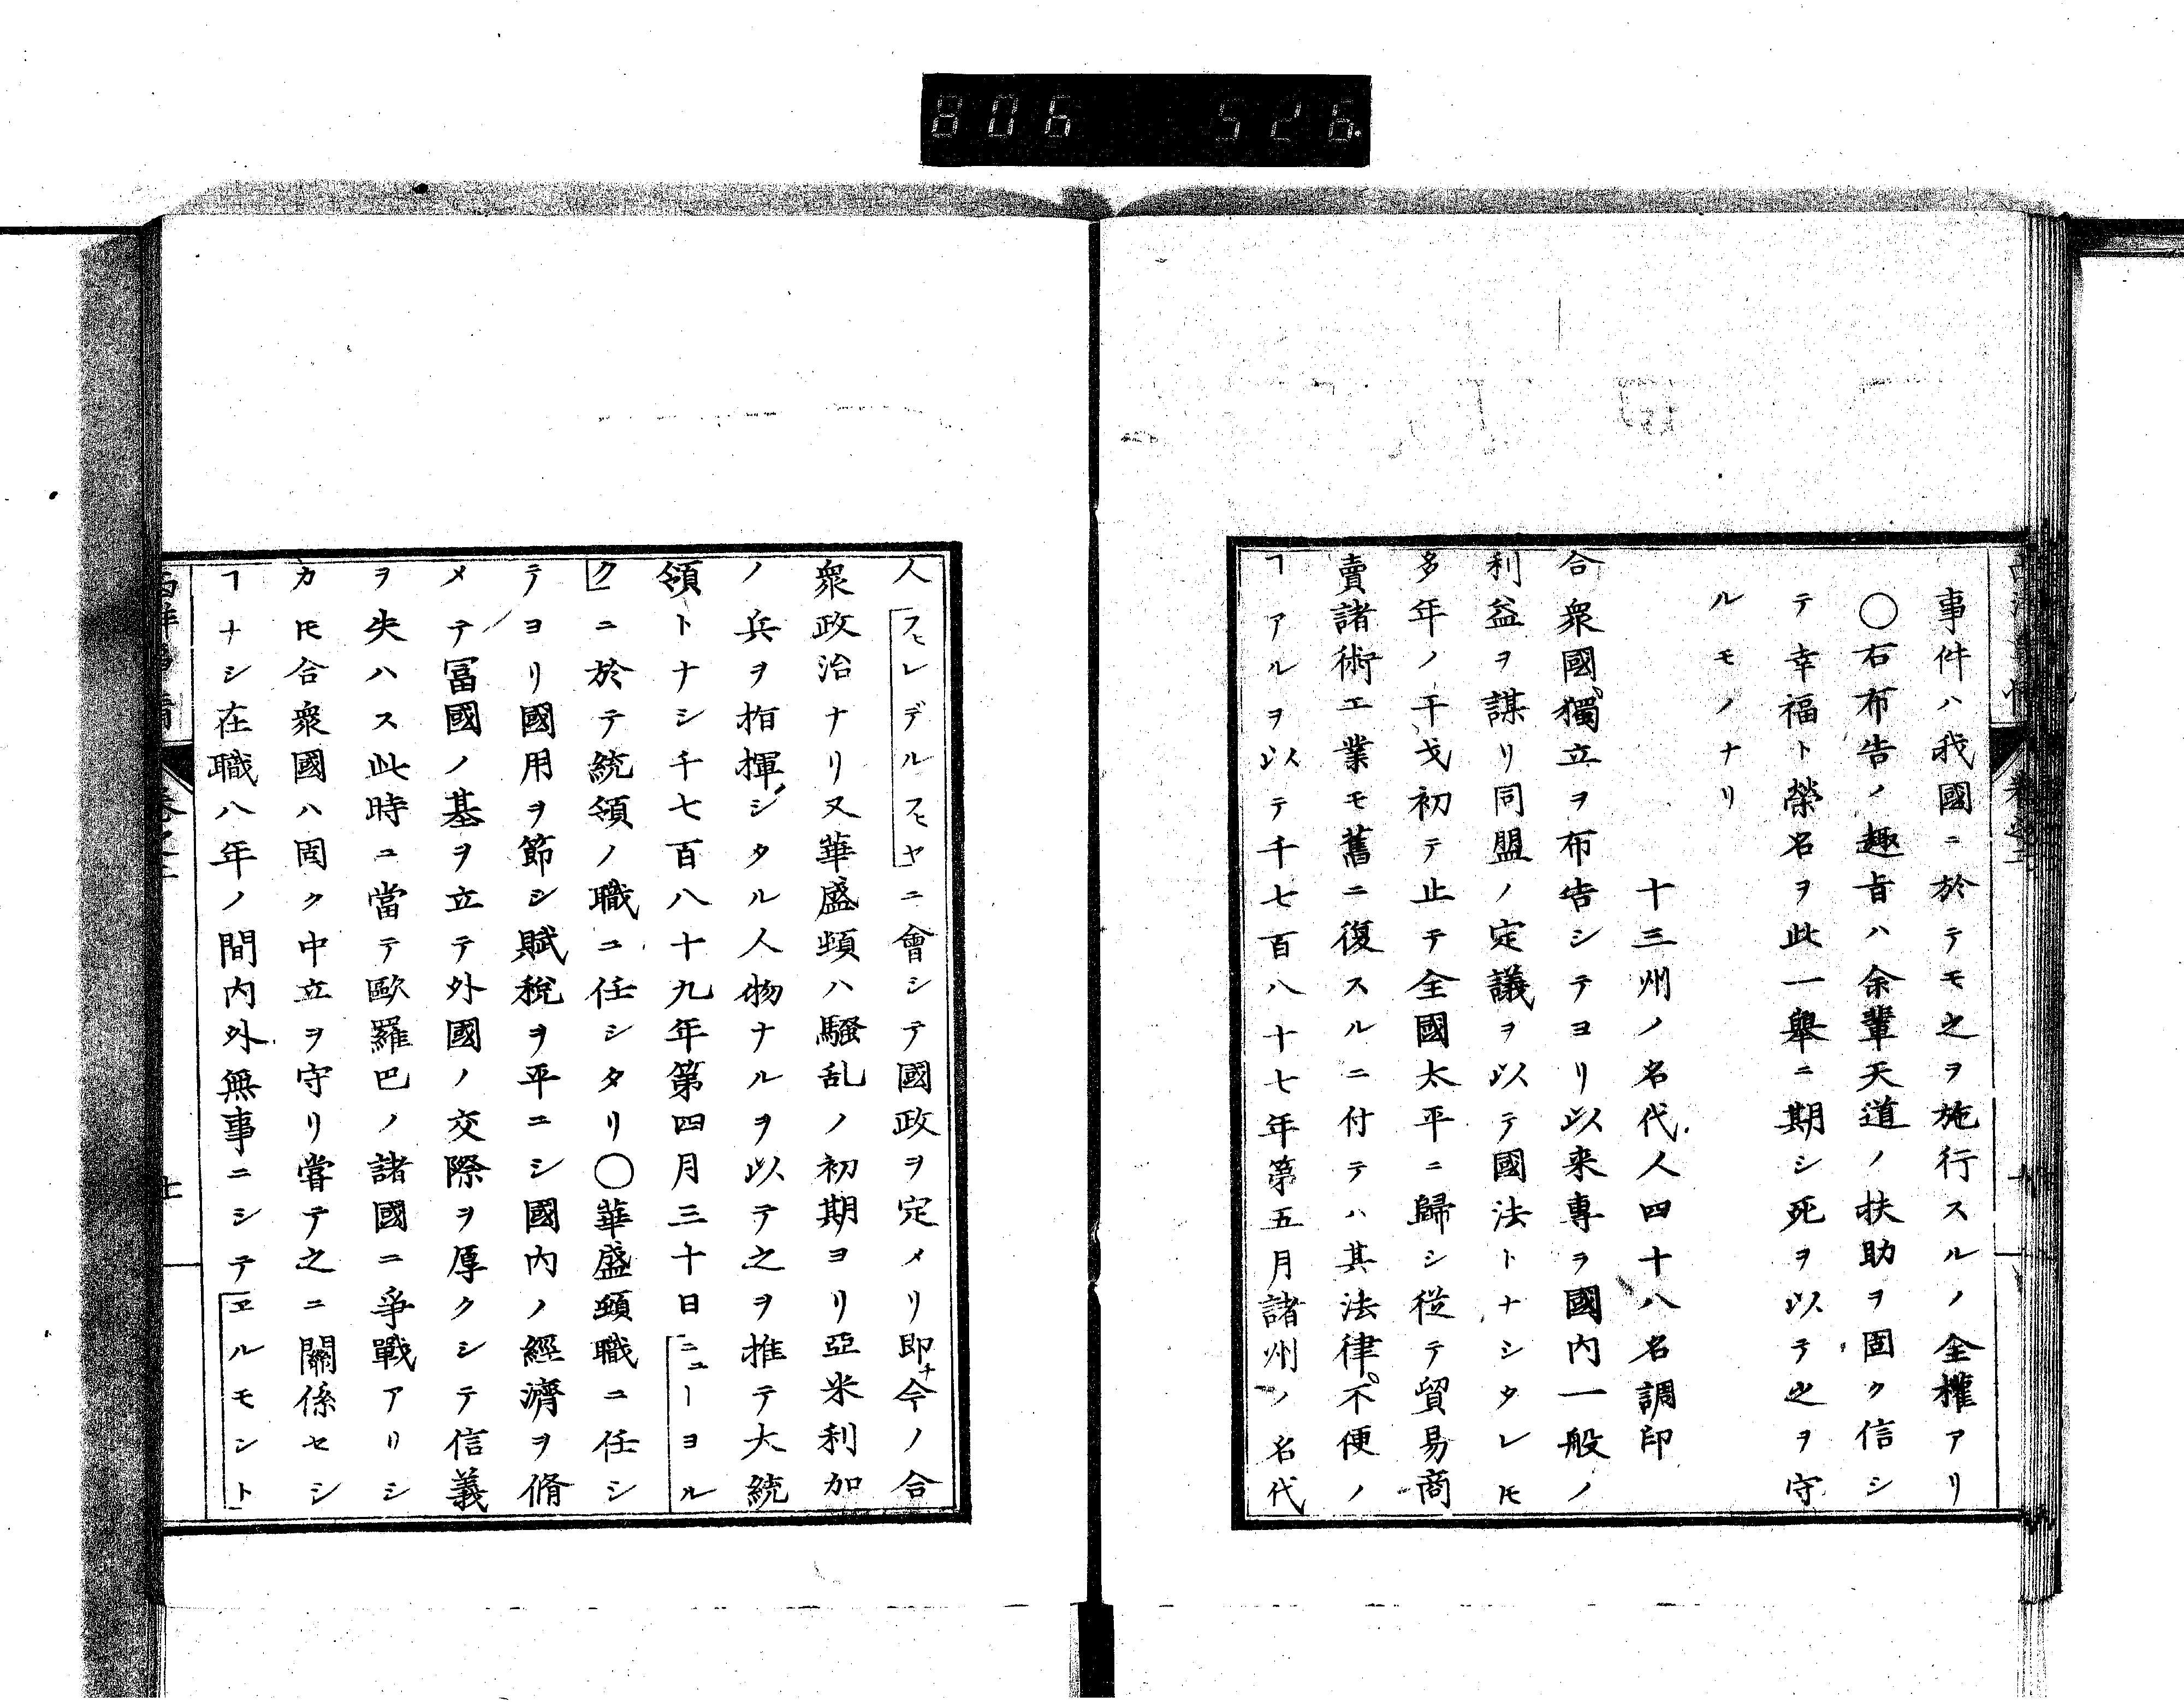 806 526.
事件ハ我國ニ於テモ之ヲ施行スルノ全權アリ
〇右布告ノ趣旨ハ余輩天道ノ扶助ヲ固ク信シ
テ幸福ト榮名ヲ此一擧ニ期シ死ヲ以テ之ヲ守
ルモノナリ
十三州ノ名代人四十八名調印
合衆國獨立ヲ布告シテヨリ以来專ヲ國内一般ノ
利益ヲ謀リ同盟ノ定議ヲ以テ國法トナシタレ𪜈
多年ノ干戈初テ止テ全國太平ニ歸シ從テ貿易商
賣諸術工業モ舊ニ復スルニ付テハ其法律不便ノ
ヿアルヲ以テ千七百八十七年第五月諸州ノ名代
人フヒレデルフヒヤニ會シテ國政ヲ定メリ即チ今ノ合
衆政治ナリ又華盛頓ハ騷乱ノ初期ヨリ亞米利加
ノ兵ヲ指揮シタル人物ナルヲ以テ之ヲ推テ大統
領トナシ千七百八十九年第四月三十日ニューヨル
クニ於テ統領ノ職ニ任シタリ〇華盛頓職ニ任シ
テヨリ國用ヲ節シ賦稅ヲ平ニシ國内ノ經濟ヲ脩
メテ冨國ノ基ヲ立テ外國ノ交際ヲ厚クシテ信義
ヲ失ハス此時ニ當テ歐羅巴ノ諸國ニ爭戰アリシ
カ𪜈合衆國ハ固ク中立ヲ守リ甞テ之ニ關係セシ
ヿナシ在職八年ノ間内外無事ニシテヱルモント